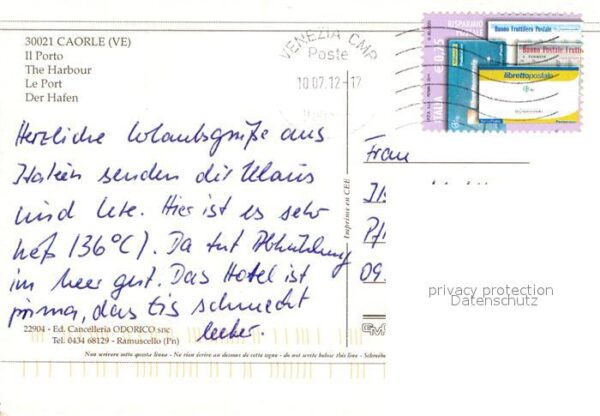 30021 CAORLE (VE)
Il Porto
The Harbour
Le Port
Der Hafen
VENEZIA CMP
Poste
10.07.12-17
RISPARMIO POSTALE
Buono Fruttifero Postale
libretto postale
ITALIA
Herzliche Urlaubsgrüße aus
Italien senden dir Klaus
und Ute. Hier ist es sehr
heiß (36°C). Da tut Abkühlung
im Meer gut. Das Hotel ist
prima, das Eis schmeckt
lecker.
Frau
Imprimé en CEE
09.
privacy protection
Datenschutz
22904 - Ed. Cancelleria ODORICO snc
Tel. 0434 68129 - Ramuscello (Pn)
Non scrivere sotto questa linea - Ne rien écrire au dessous de cette ligne - do not write below this line - Schreiben